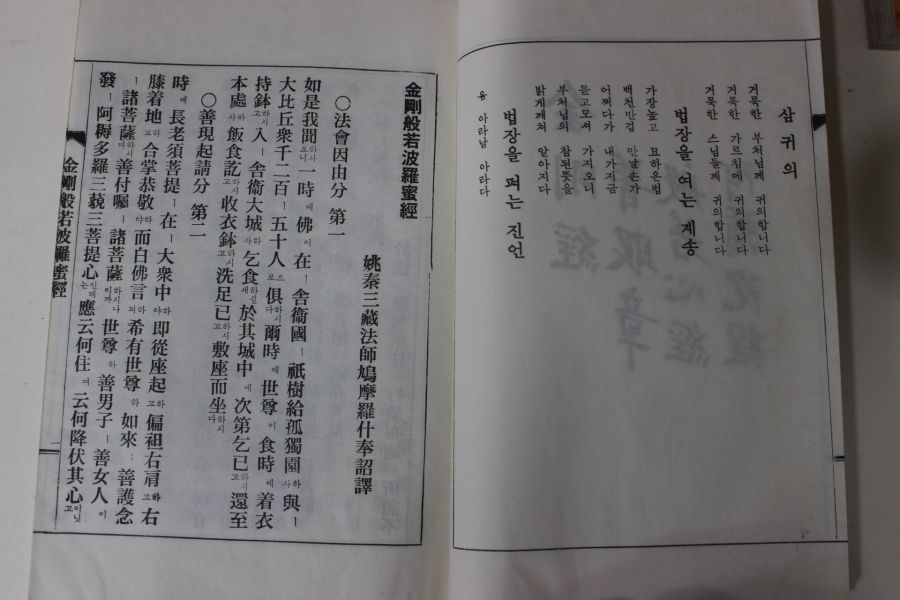 삼귀의
거룩한 부처님께 귀의합니다
거룩한 가르침에 귀의합니다
거룩한 스님들께 귀의합니다
법장을 여는 게송
가장높고 묘하온법
백천만겁 만날손가
어쩌다가 내가지금
듣고모셔 가지오니
부처님의 참된뜻을
밝게깨쳐 알아지다
법장을 펴는 진언
옴 아라남 아라다
金剛般若波羅蜜經
姚秦三藏法師鳩摩羅什奉詔譯
○法會因由分 第一
如是我聞하사오니 一時에 佛이 在ㅣ舍衞國ㅣ祇樹給孤獨園하사 與ㅣ
大比丘衆千二百ㅣ五十人으로 俱하시다 爾時에 世尊이 食時에 着衣
持鉢하시고 入ㅣ舍衞大城하사 乞食하실새 於其城中에 次第乞已하시고 還至
本處하사 飯食訖하시고 收衣鉢하시고 洗足已하시고 敷座而坐하시다
○善現起請分 第二
時에 長老須菩提ㅣ在ㅣ大衆中하야 即從座起하고 偏袒右肩하고 右
膝着地하고 合掌恭敬하야 而白佛言하되 希有世尊하 如來ㅣ善護念
ㅣ諸菩薩하시며 善付囑ㅣ諸菩薩하시나이까 世尊하 善男子ㅣ善女人이
發ㅣ阿耨多羅三藐三菩提心인데는 應云何住며 云何降伏其心이닛고
金剛般若波羅蜜經